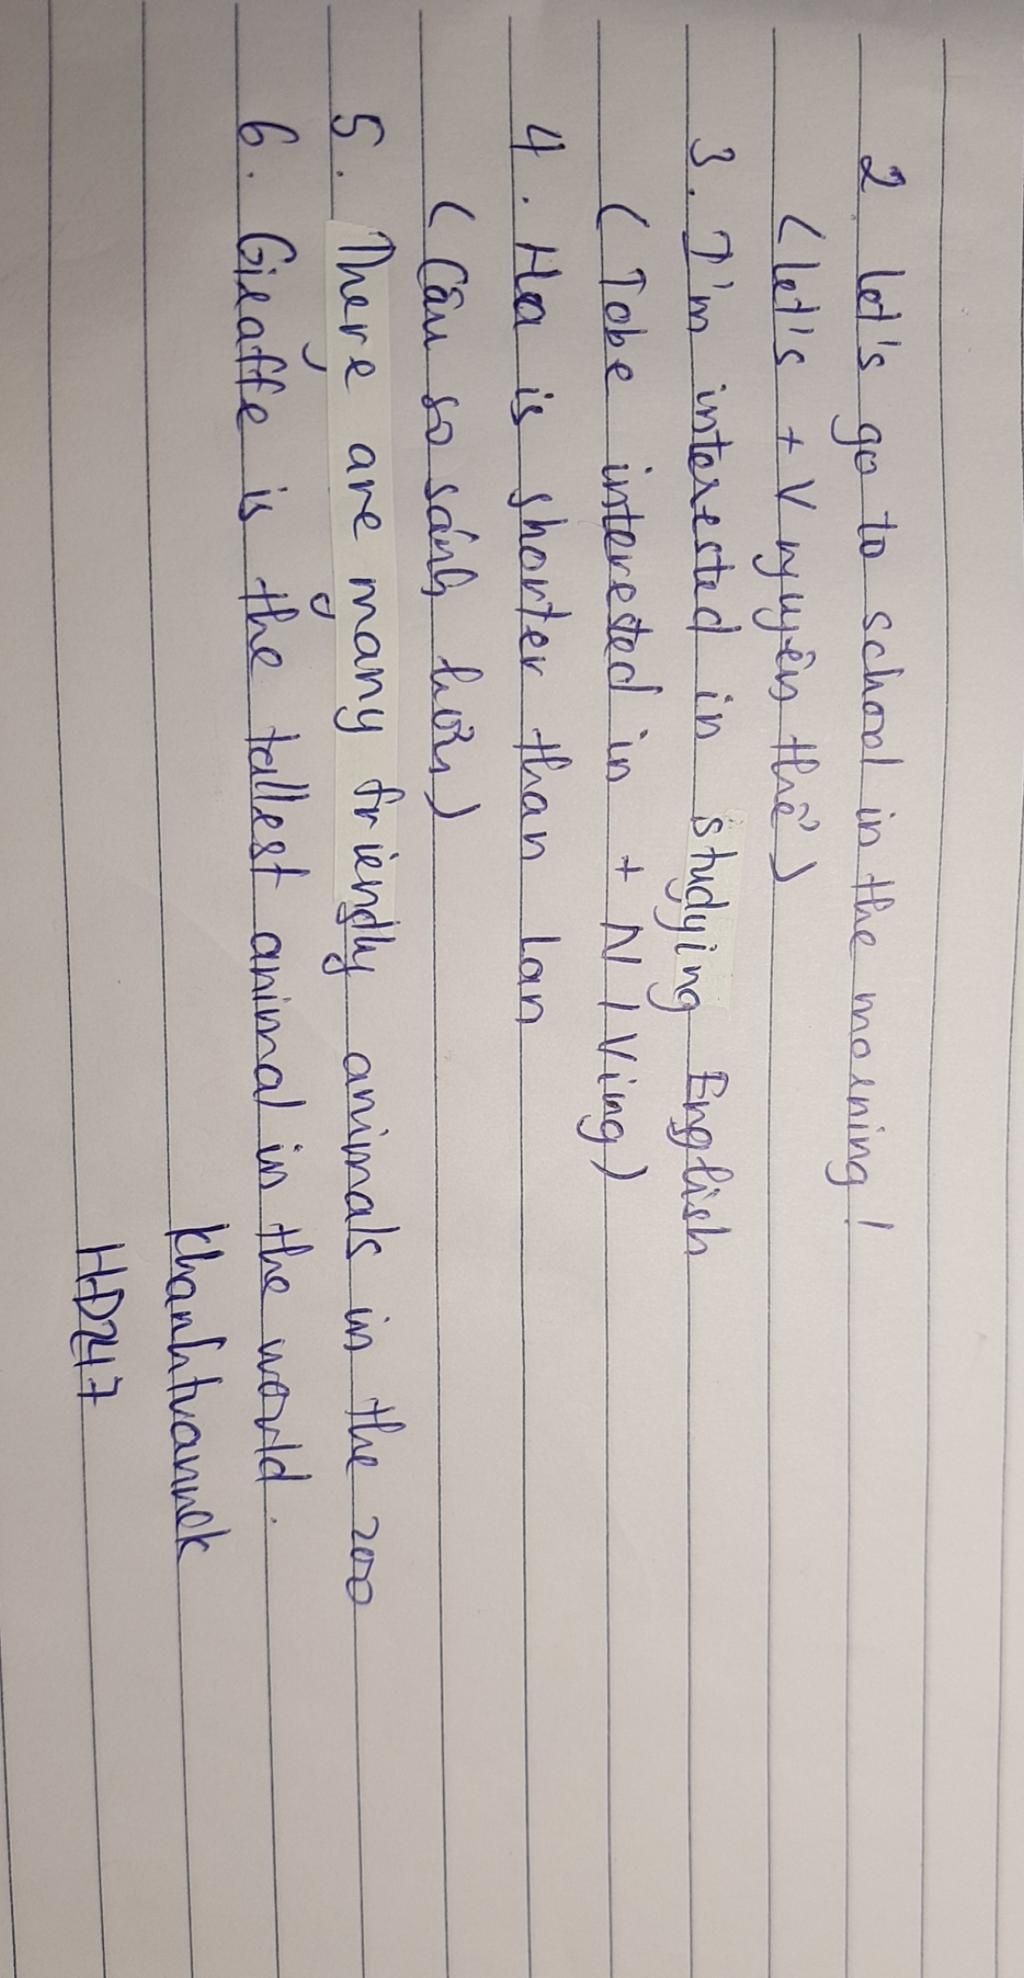 2. let's go to school in the morning!
(let's + V nguyên thể)
3. I'm interested in studying English
(Tobe interested in + N / Ving)
4. Ha is shorter than lan
(Câu so sánh hơn)
5. There are many friendly animals in the zoo
6. Giraffe is the tallest animal in the world.
khanhvannek
HD247